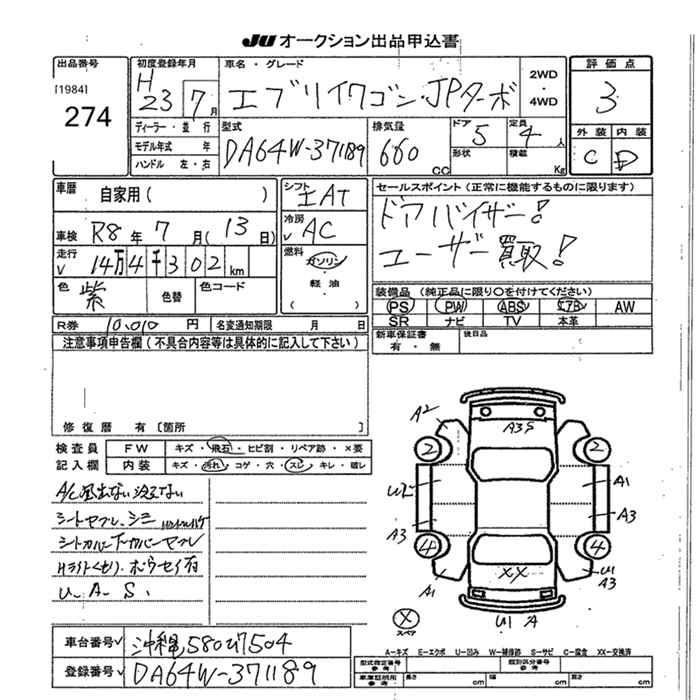 JU オークション出品申込書
出品番号
[1984]
274
初度登録年月
H
23 7月
ディーラー・並行
モデル年式 年
ハンドル 左・右
車名・グレード
エブリイワゴン・JPターボ
2WD
・
4WD
型式
DA64W-371189
排気量
660
CC
ドア
5
定員
4人
形状
積載
Kg
評価点
3
外装 内装
C D
車歴
自家用( )
車検 R8年 7月(13日)
走行 14万4千302km
∨
色
紫
色替
色コード
シフト
エAT
冷房
∨ AC
燃料
ガソリン
・
軽油
( )
セールスポイント(正常に機能するものに限ります)
ドアバイザー!
ユーザー買取!
装備品(純正品に限り○を付けてください)
PS PW ABS エアB AW
SR ナビ TV 本革
新車保証書
有・無
後日品
R券 10,010 円 名変通知期限 月 日
注意事項申告欄(不具合内容等は具体的に記入して下さい)
修復歴 有〔箇所 〕
検査員 FW キズ・飛石・ヒビ割・リペア跡・×要
記入欄 内装 キズ・汚れ・コゲ・穴・スレ・キレ・破レ
A/C風出ない冷えない
シートヤブレ、シミ
シートカバー下カバーヤブレ
Hライトくもり、
U.A.S.
A2
A3S
2
2
A1
A3
A3
4
4
A1
XX
U1
A3
U1 A
X
スペア
車台番号∨ 沖縄580い7504
登録番号∨ DA64W-371189
A-キズ E-エクボ U-凹み W-補修跡 S-サビ C-腐食 XX-交換済
型式指定番号
参考
類別区分番号
参考
車庫証明用
参考
長さ cm 幅 cm 高さ cm